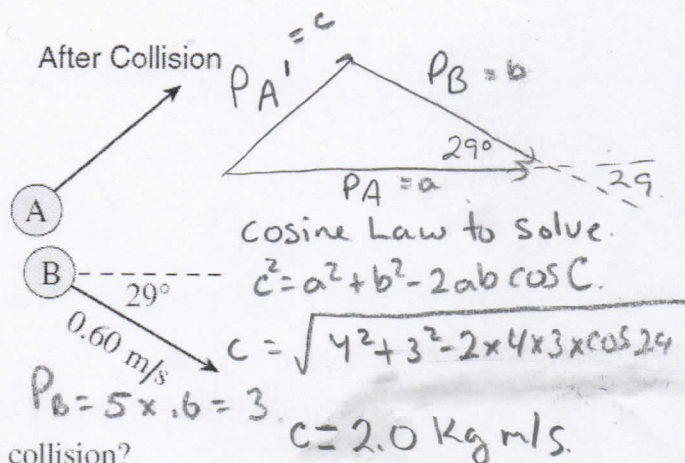 After Collision
PA' = c
PB = b
29°
PA = a
29
A
cosine Law to solve.
B
29°
c² = a² + b² - 2ab cos C.
0.60 m/s
c = √4² + 3² - 2 × 4 × 3 × cos 29
PB = 5 x .6 = 3
c = 2.0 Kg m/s.
collision?